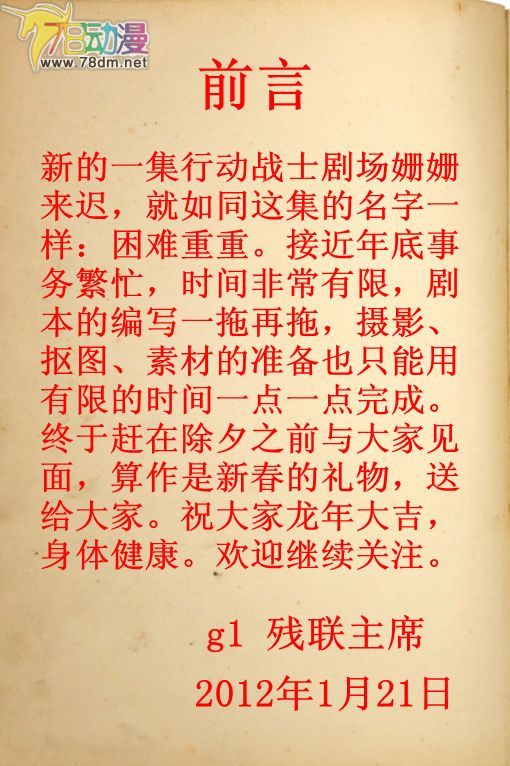 78动漫
www.78dm.net
前言
新的一集行动战士剧场姗姗
来迟，就如同这集的名字一
样：困难重重。接近年底事
务繁忙，时间非常有限，剧
本的编写一拖再拖，摄影、
抠图、素材的准备也只能用
有限的时间一点一点完成。
终于赶在除夕之前与大家见
面，算作是新春的礼物，送
给大家。祝大家龙年大吉，
身体健康。欢迎继续关注。
g1 残联主席
2012年1月21日